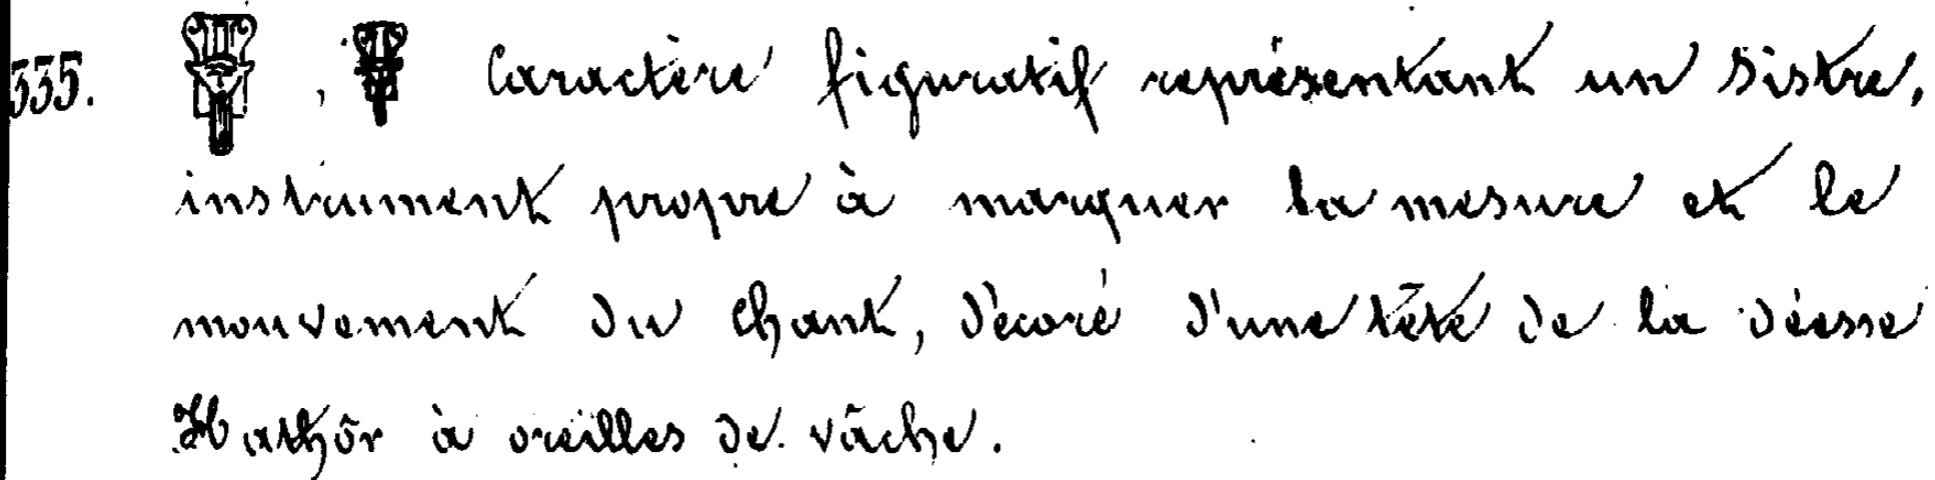 335. 𓏣, 𓏣 Caractère figuratif représentant un Sistre,
instrument propre à marquer la mesure et le
mouvement du chant, décoré d'une tête de la déesse
Hathôr à oreilles de vâche.